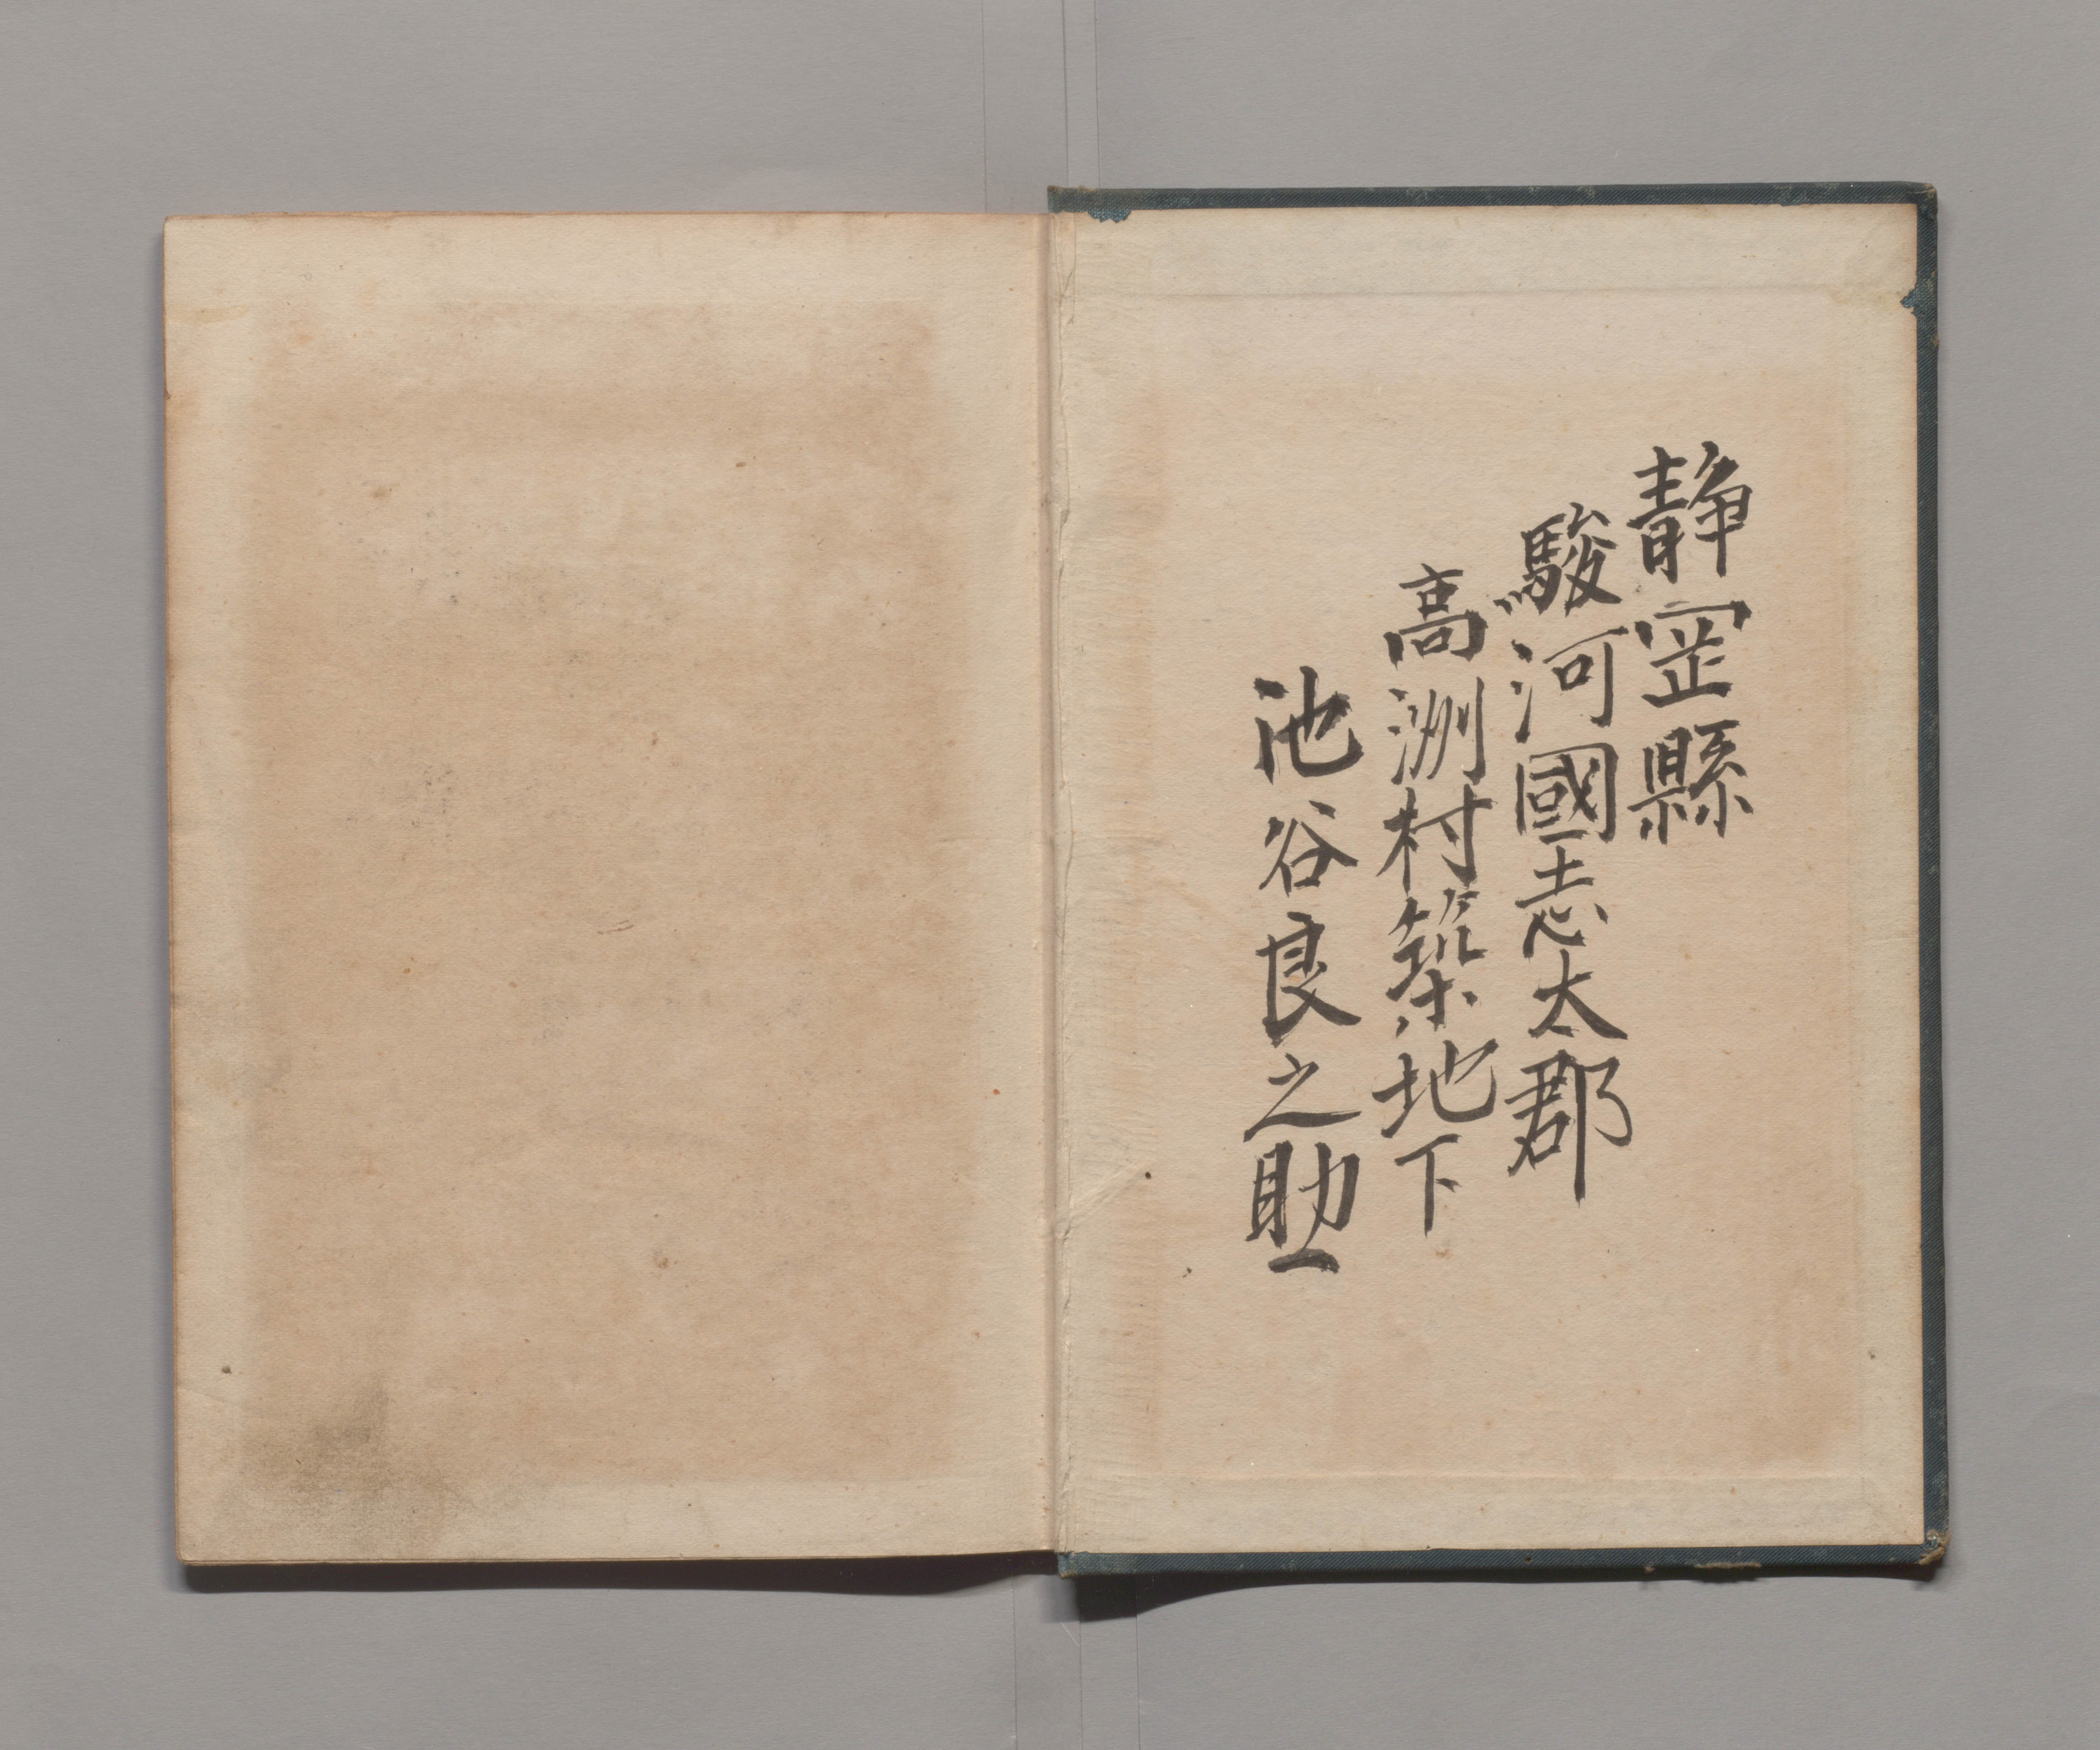 静罡縣
駿河國志太郡
高洲村築地下
池谷良之助